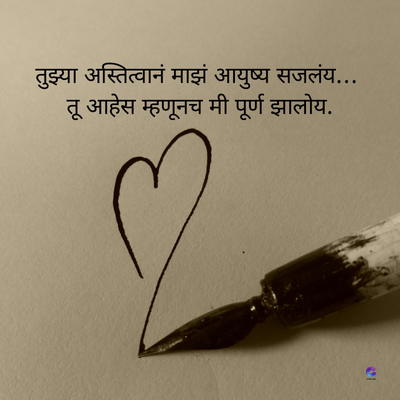 तुझ्या अस्तित्वानं माझं आयुष्य सजलंय...
तू आहेस म्हणूनच मी पूर्ण झालोय.